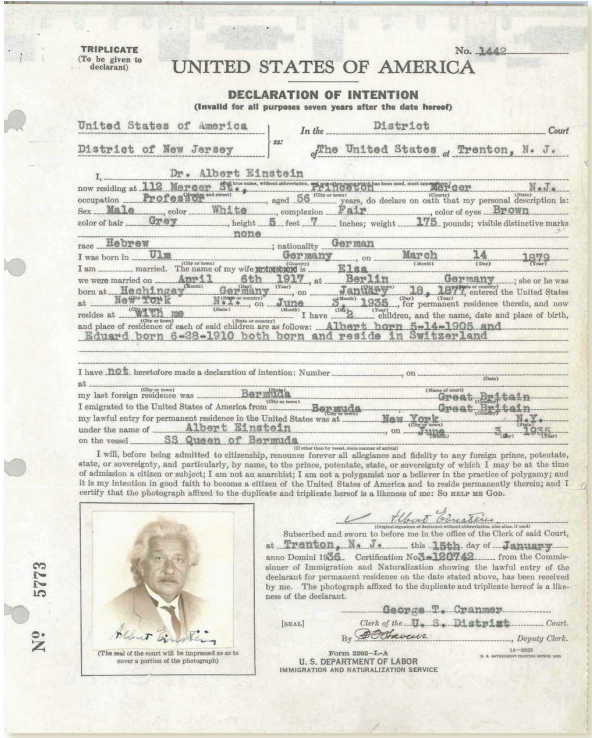 TRIPLICATE
(To be given to
declarant)
No. 1442
UNITED STATES OF AMERICA
DECLARATION OF INTENTION
(Invalid for all purposes seven years after the date hereof)
United States of America
District of New Jersey
ss:
In the District Court
of The United States at Trenton, N. J.
I, Dr. Albert Einstein
now residing at 112 Mercer St., Princeton Mercer N.J.
occupation Professor, aged 56 years, do declare on oath that my personal description is:
Sex Male, color White, complexion Fair, color of eyes Brown
color of hair Grey, height 5 feet 7 inches; weight 175 pounds; visible distinctive marks
none
race Hebrew; nationality German
I was born in Ulm Germany, on March 14 1879
I am married. The name of my wife is Elsa
we were married on April 6th 1917, at Berlin Germany; she or he was
born at Hechingen Germany, on January 18, 1877, entered the United States
at New York N.Y., on June 3, 1935, for permanent residence therein, and now
resides at with me I have 2 children, and the name, date and place of birth,
and place of residence of each of said children are as follows: Albert born 5-14-1905 and
Eduard born 6-28-1910 both born and reside in Switzerland
I have not heretofore made a declaration of intention: Number, on
at
my last foreign residence was Bermuda Great Britain
I emigrated to the United States of America from Bermuda Great Britain
my lawful entry for permanent residence in the United States was at New York N.Y.
under the name of Albert Einstein, on June 3 1935
on the vessel SS Queen of Bermuda
(If other than by vessel, state manner of arrival)
I will, before being admitted to citizenship, renounce forever all allegiance and fidelity to any foreign prince, potentate,
state, or sovereignty, and particularly, by name, to the prince, potentate, state, or sovereignty of which I may be at the time
of admission a citizen or subject; I am not an anarchist; I am not a polygamist nor a believer in the practice of polygamy; and
it is my intention in good faith to become a citizen of the United States of America and to reside permanently therein; and I
certify that the photograph affixed to the duplicate and triplicate hereof is a likeness of me: SO HELP ME GOD.
Albert Einstein
(Original signature of declarant without abbreviation, also alias, if used)
Subscribed and sworn to before me in the office of the Clerk of said Court,
at Trenton, N. J. this 15th day of January
anno Domini 1936. Certification No 3-120742 from the Commis-
sioner of Immigration and Naturalization showing the lawful entry of the
declarant for permanent residence on the date stated above, has been received
by me. The photograph affixed to the duplicate and triplicate hereof is a like-
ness of the declarant.
George T. Cranmer
[SEAL] Clerk of the U. S. District Court.
By , Deputy Clerk.
Form 2202-L-A
U. S. DEPARTMENT OF LABOR
IMMIGRATION AND NATURALIZATION SERVICE
Albert Einstein
(The seal of the court will be impressed so as to
cover a portion of the photograph)
No 5773